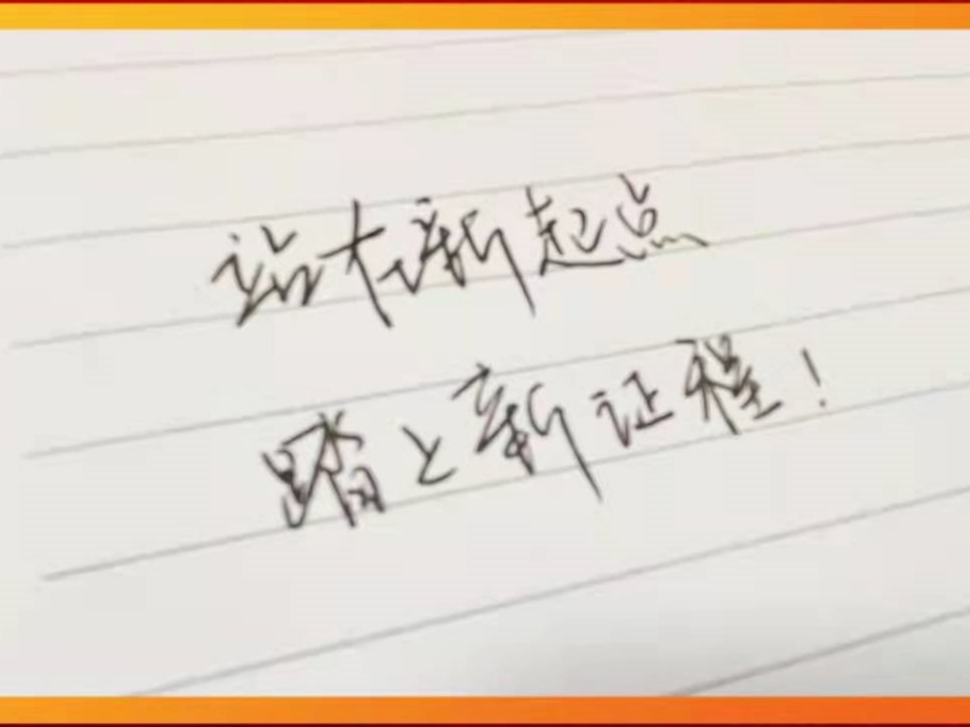 站在新起点
踏上新证程!